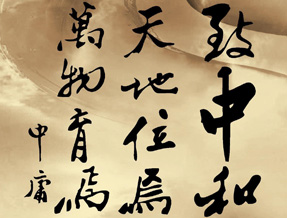 致中和
天地位焉
萬物育焉
中庸